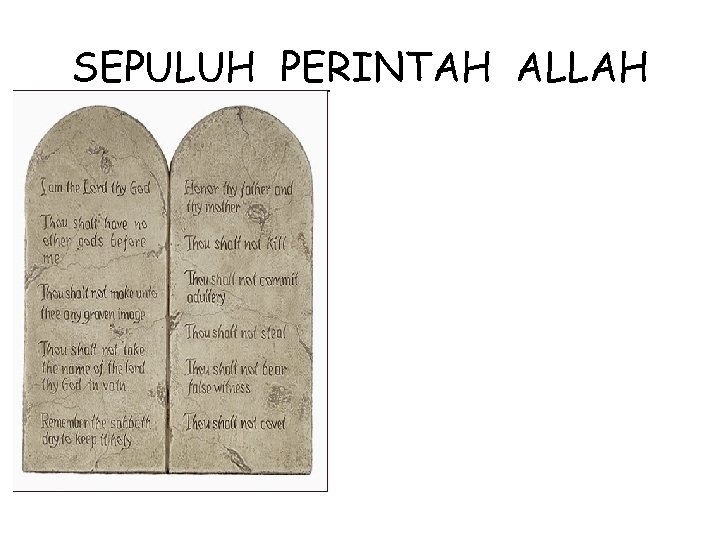 SEPULUH PERINTAH ALLAH
I am the Lord thy God
Thou shalt have no
other gods before
me
Thou shalt not make unto
thee any graven image
Thou shalt not take
the name of the lord
thy God in vain
Remember the sabbath
day to keep it holy
Honor thy father and
thy mother
Thou shall not kill
Thou shall not commit
adultery
Thou shalt not steal
Thou shalt not bear
false witness
Thou shalt not covet